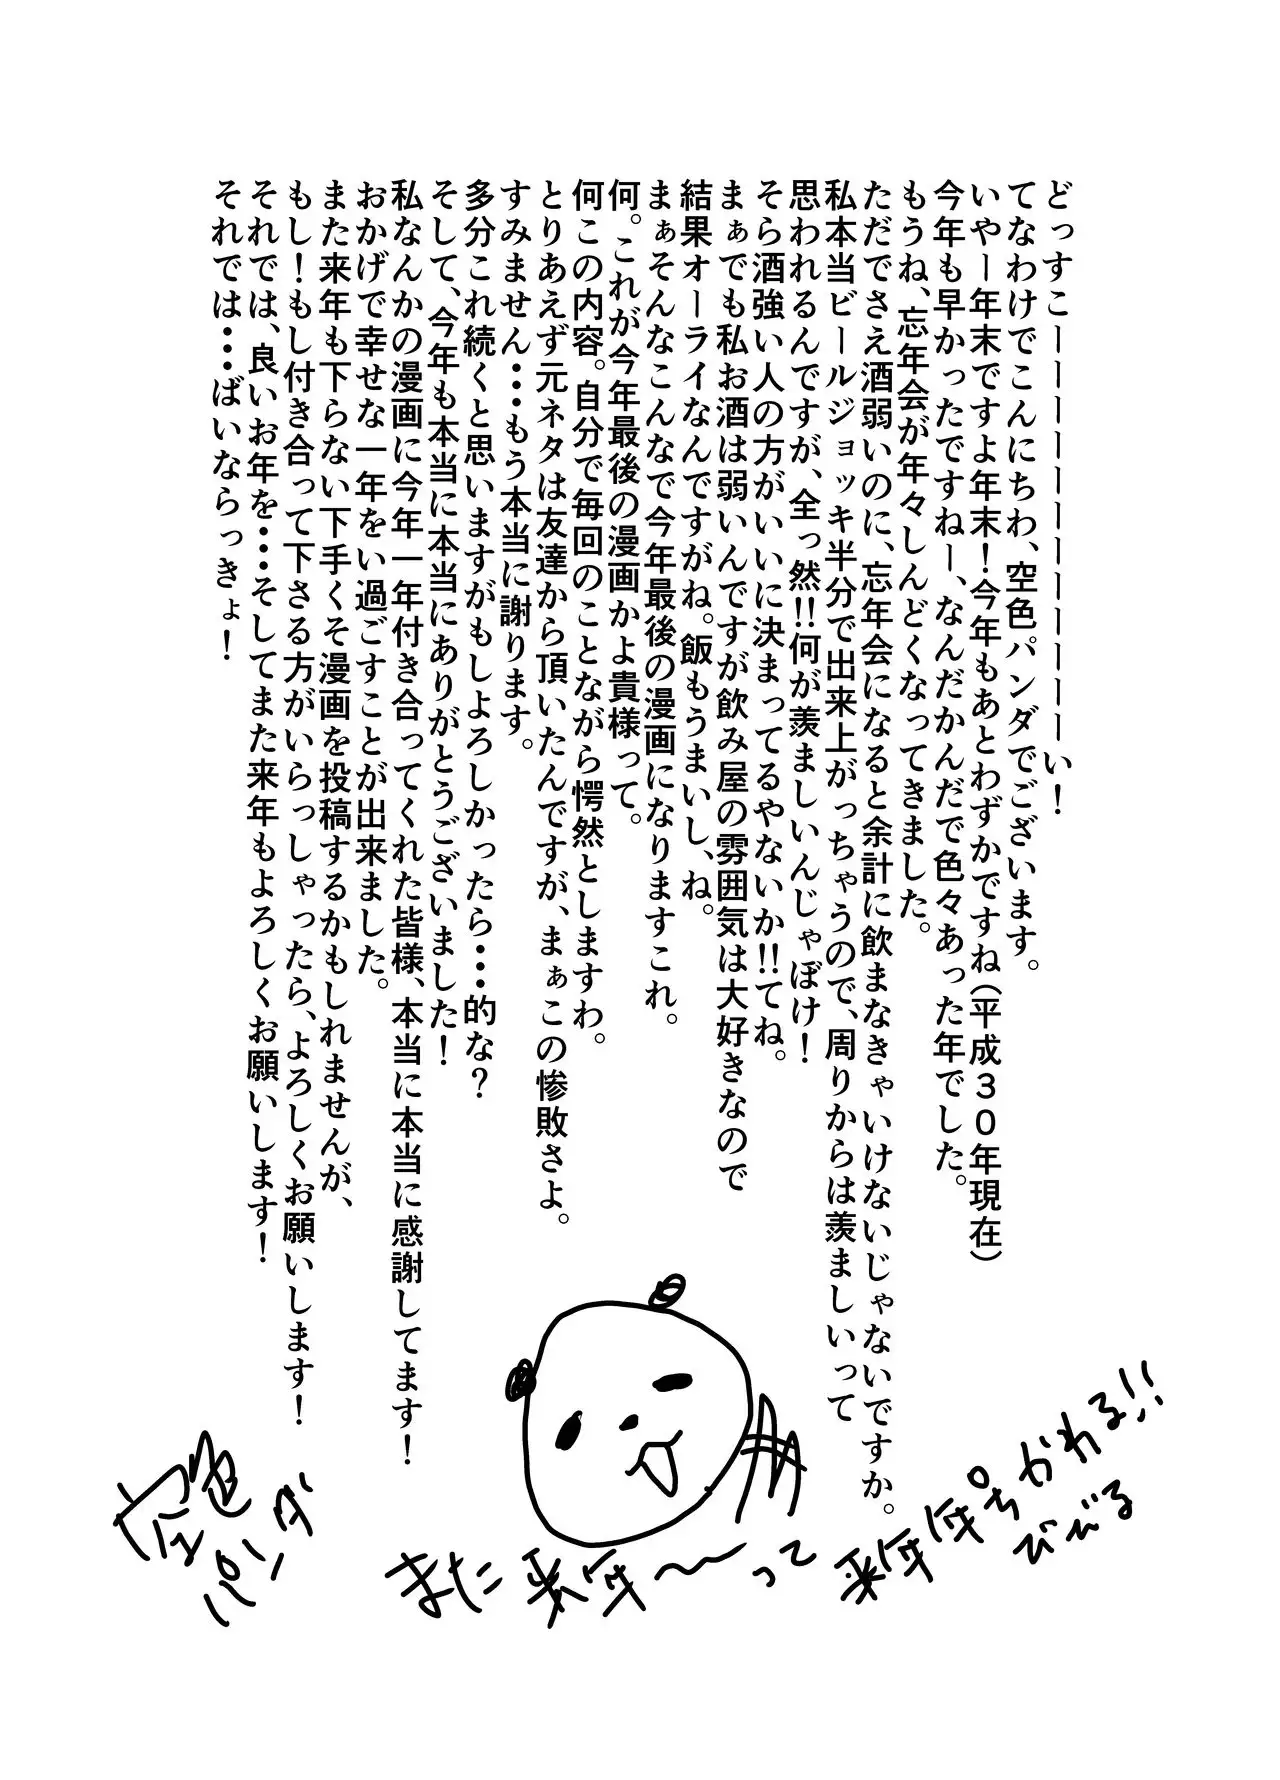 どっすこーーーーーーーーーーーい！
てなわけでこんにちわ、空色パンダでございます。
いやー年末ですよ年末！今年もあとわずかですね（平成３０年現在）
今年も早かったですねー、なんだかんだで色々あった年でした。
もうね、忘年会が年々しんどくなってきました。
ただでさえ酒弱いのに、忘年会になると余計に飲まなきゃいけないじゃないですか。
私本当ビールジョッキ半分で出来上がっちゃうので、周りからは羨ましいって
思われるんですが、全っ然!!何が羨ましいんじゃぼけ！
そら酒強い人の方がいいに決まってるやないか!!てね。
まぁでも私お酒は弱いんですが飲み屋の雰囲気は大好きなので
結果オーライなんですがね。飯もうまいし、ね。
まぁそんなこんなで今年最後の漫画になりますこれ。
何。これが今年最後の漫画かよ貴様って。
何この内容。自分で毎回のことながら愕然としますわ。
とりあえず元ネタは友達から頂いたんですが、まぁこの惨敗さよ。
すみません・・・もう本当に謝ります。
多分これ続くと思いますがもしよろしかったら・・・的な？
そして、今年も本当に本当にありがとうございました！
私なんかの漫画に今年一年付き合ってくれた皆様、本当に本当に感謝してます！
おかげで幸せな一年をい過ごすことが出来ました。
また来年も下らない下手くそ漫画を投稿するかもしれませんが、
もし！もし付き合って下さる方がいらっしゃったら、よろしくお願いします！
それでは、良いお年を・・・そしてまた来年もよろしくお願いします！
それでは・・・ばいならっきょ！
空色
パンダ
また来年〜って
来年年号かわる!!
びびる